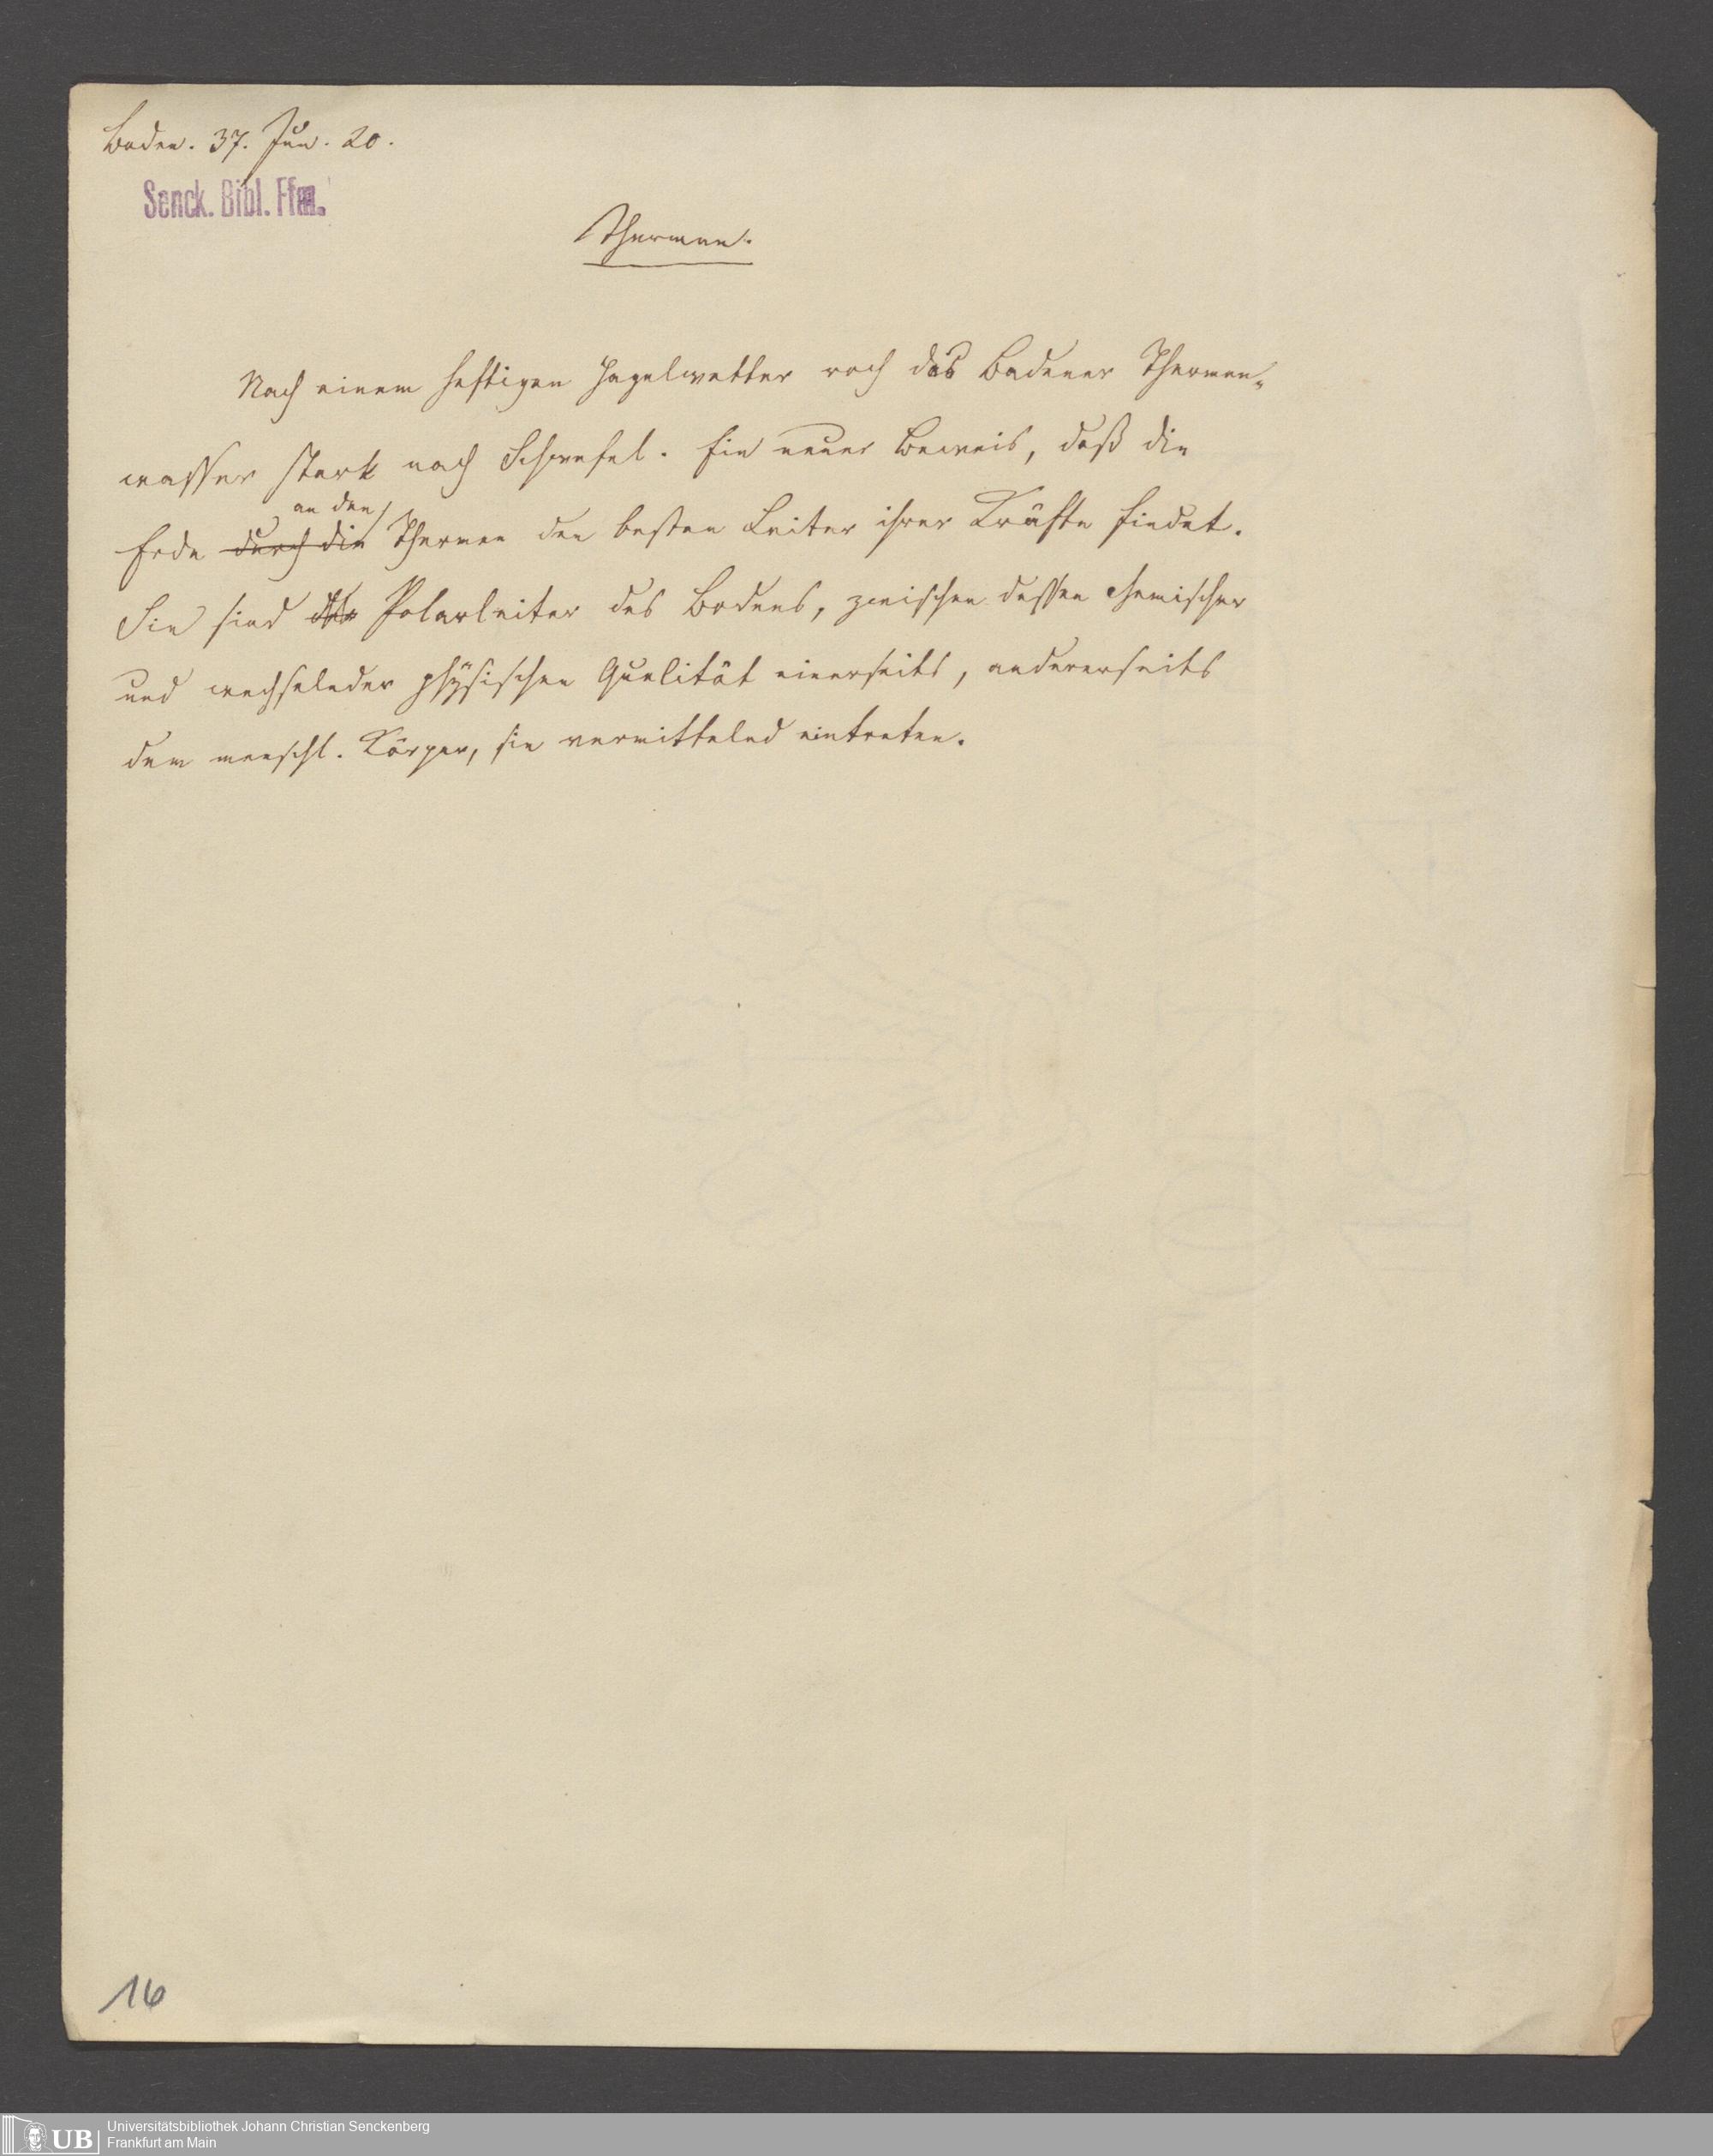 Baden. 37. Jun. 20.
Senck. Bibl. Ffm.
Thermen.
Nach einem heftigen Hagelwetter roch das Badener Thermen-
wasser stark nach Schwefel. Ein neuer Beweis, daß die
an den
Erde durch die Thermen den besten Leiter ihrer Kräfte findet.
Sie sind Polarleiter des Bodens, zwischen dessen chemischer
und wechselnder physischen Qualität einerseits, andererseits
dem menschl. Körper, sie vermittelnd eintreten.
16
UB
Universitätsbibliothek Johann Christian Senckenberg
Frankfurt am Main